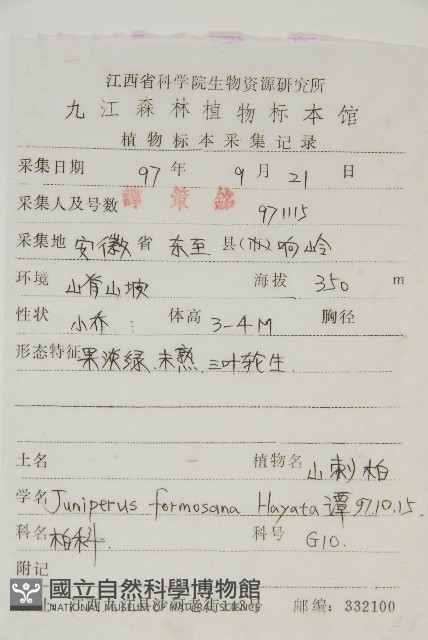 江西省科学院生物资源研究所
九江森林植物标本馆
植物标本采集记录
采集日期 97 年 9 月 21 日
采集人及号数 譚策銘 971115
采集地 安徽 省 东至 县(市) 响岭
环境 山脊山坡 海拔 350 m
性状 小乔 体高 3-4M 胸径
形态特征 果淡绿.未熟.三叶轮生.
土名 植物名 山刺柏
学名 Juniperus formosana Hayata 谭 97.10.15.
科名 柏科. 科号 G10.
附记
國立自然科學博物館
NATIONAL MUSEUM OF NATURAL SCIENCE
江西九江县沙河老街 邮编: 332100